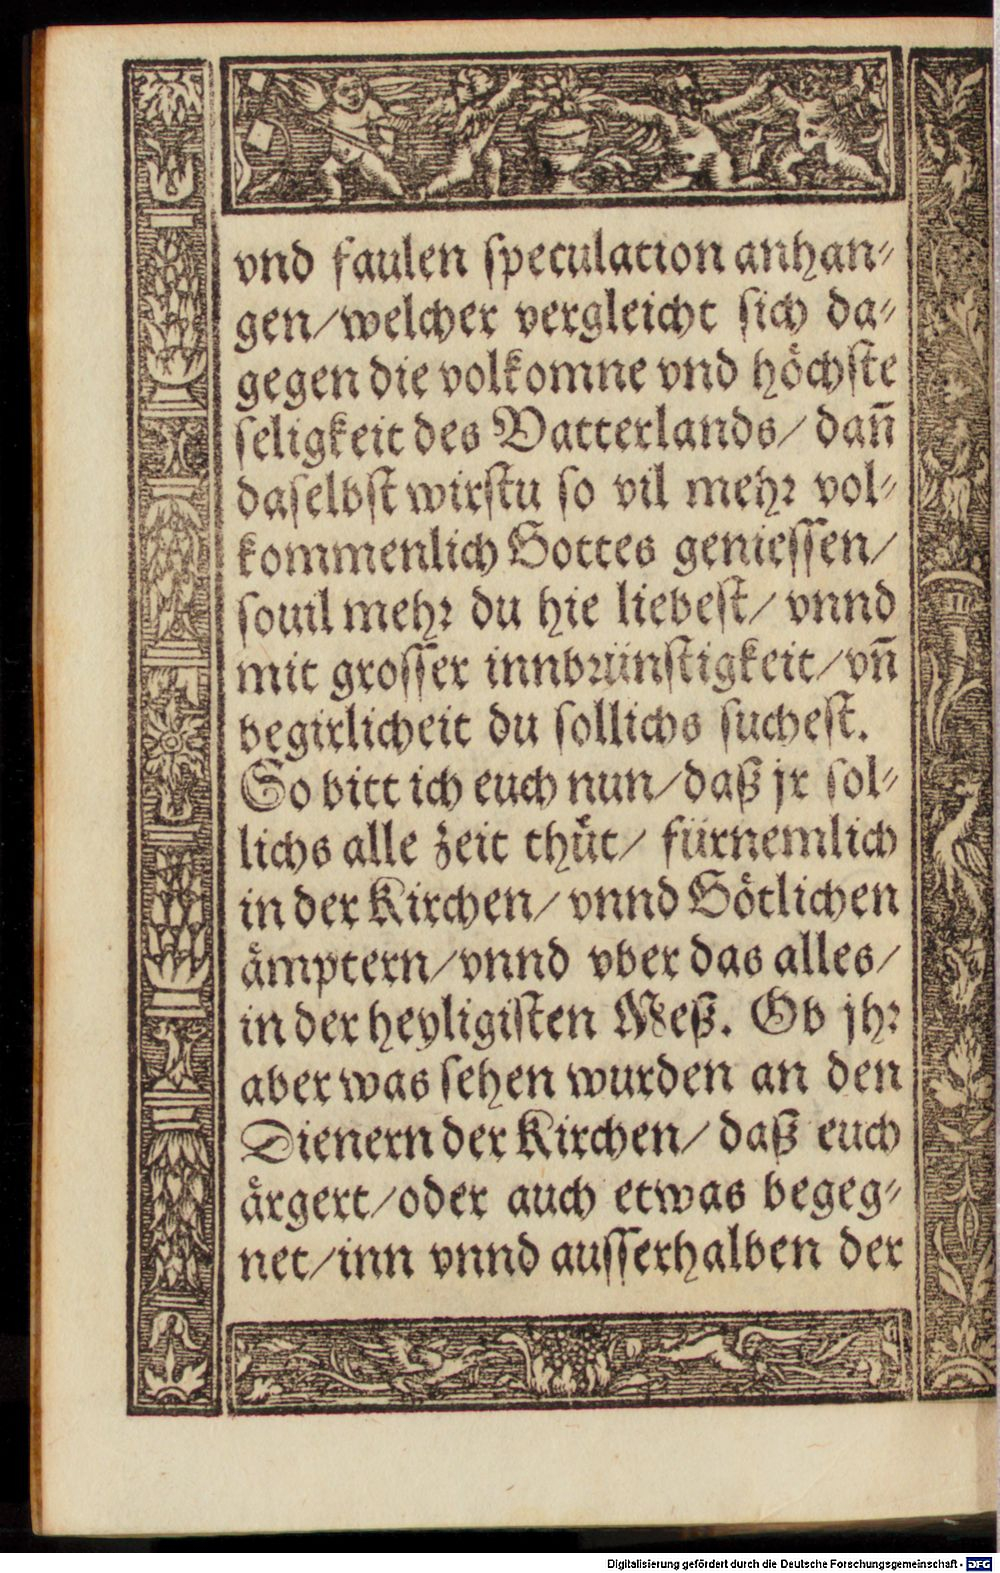 vnd faulen speculation anhan⸗
gen/welcher vergleicht sich da⸗
gegen die volkomne vnd höchste
seligkeit des Vatterlands/ dañ
daselbst wirstu so vil mehr vol⸗
kommenlich Gottes geniessen/
souil mehr du hie liebest/ vnnd
mit grosser innbrünstigkeit/vñ
begirlicheit du sollichs suchest.
So bitt ich euch nun/daß jr sol⸗
lichs alle zeit thüt/ fürnemlich
in der Kirchen/ vnnd Götlichen
ämptern/vnnd vber das alles/
in der heyligisten Meß. Ob jhr
aber was sehen wurden an den
Dienern der Kirchen/ daß euch
ärgert/oder auch etwas begeg⸗
net/inn vnnd ausserhalben der
Digitalisierung gefördert durch die Deutsche Forschungsgemeinschaft - DFG